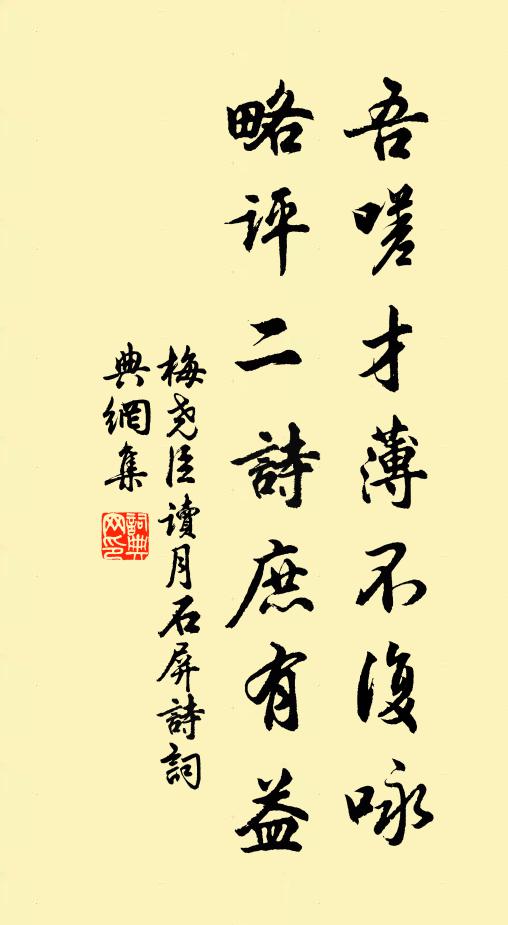 吾嗟才薄不復咏
略評二詩庶有益
梅尧臣讀月石屏詩詞
典網集
詞典網印